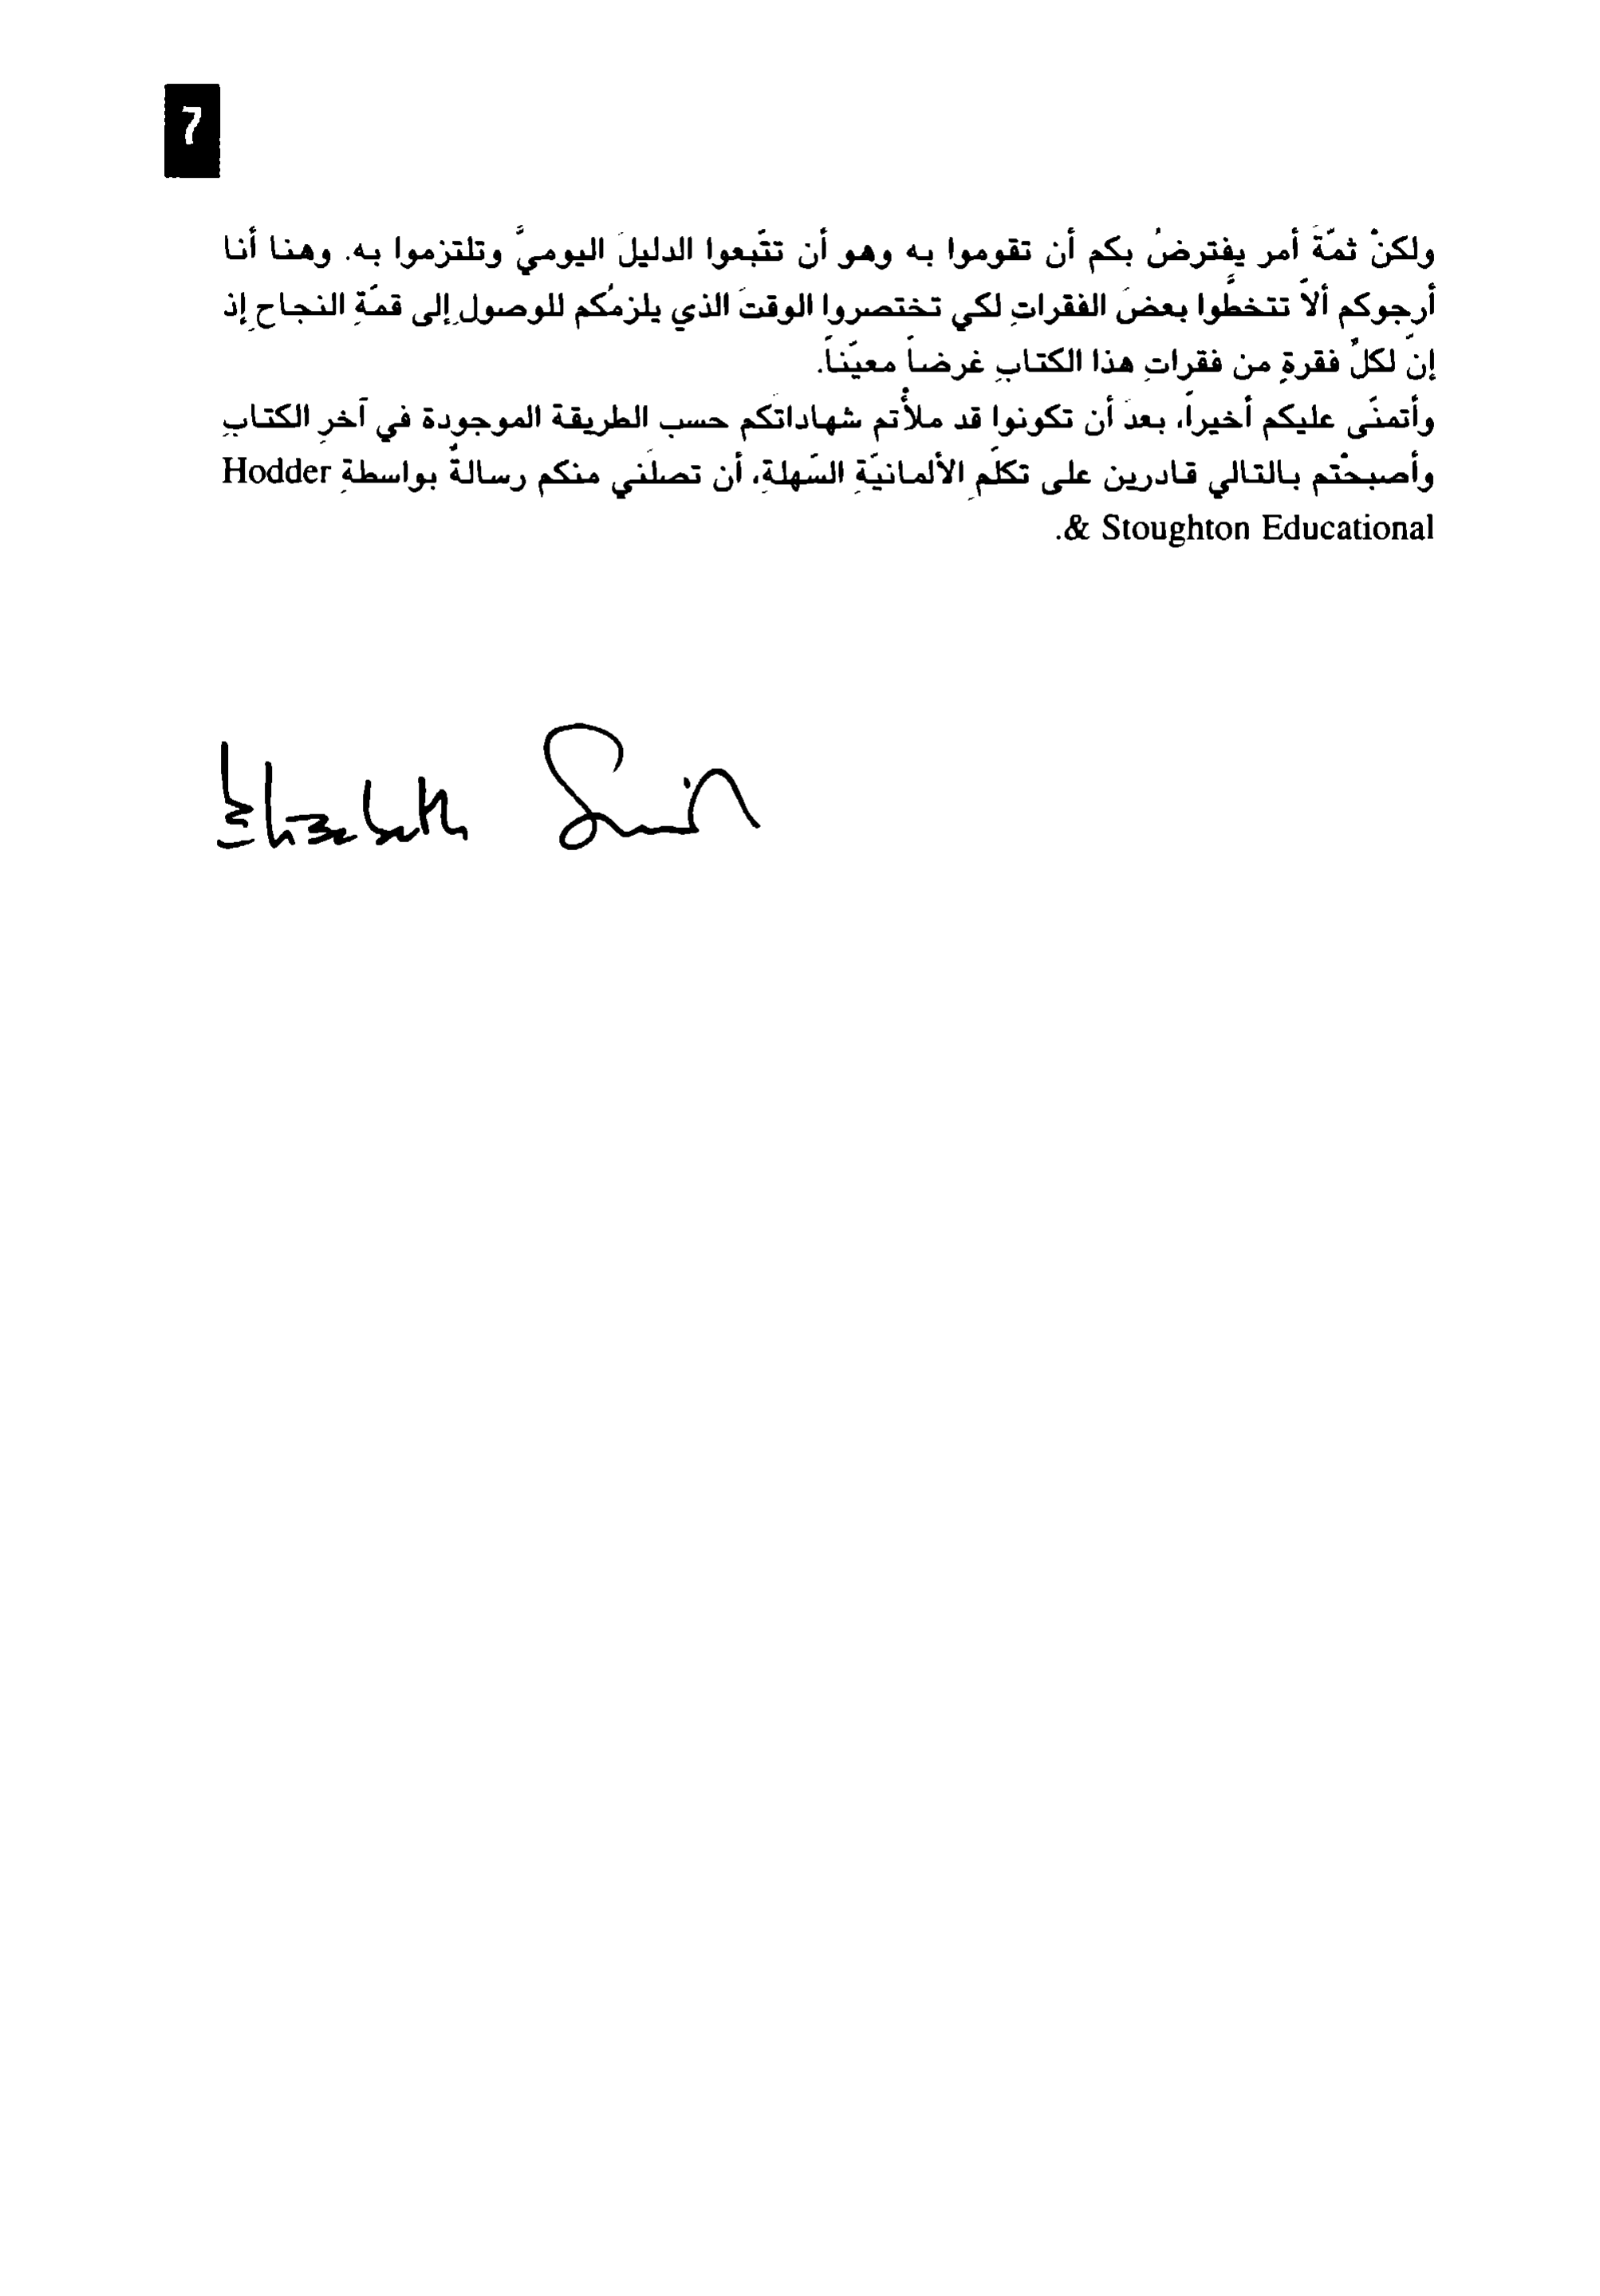 7
ولكنْ ثمّةَ أمر يفترضُ بكم أن تقوموا به وهو أن تتّبعوا الدليلَ اليوميَّ وتلتزموا به. وهنا أنا
أرجوكم ألاّ تتخطَّوا بعضَ الفقراتِ لكي تختصروا الوقتَ الذي يلزمُكم للوصولِ إلى قمّةِ النجاحِ إذ
إنّ لكلِّ فقرةٍ من فقراتِ هذا الكتابِ غرضاً معيّناً.
وأتمنّى عليكم أخيراً، بعدَ أن تكونوا قد ملأْتم شهاداتَكم حسب الطريقة الموجودة في آخرِ الكتابِ
وأصبحْتم بالتالي قادرين على تكلّمِ الألمانيّةِ السّهلةِ، أن تصلَني منكم رسالةٌ بواسطةِ Hodder
& Stoughton Educational.
Elizabeth Smith